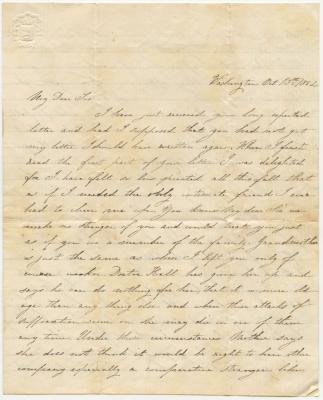 Washington Oct 13th 1862
My Dear Sir
I have just received your long expected
letter and had I supposed that you had not got
my letter I should have written again. When I first
read the first part of your letter I was delighted
for I have felt so low spirited all this fall that
as if I needed the only intimate friend I ever
had to cheer me up. You
make no stranger of you and would treat you just
as if you was a member of the family. Grandmother
is just the same as when I left you only of
course weaker. Doctor Hall has given her up and
says he can do nothing for her that it is more old
age than any thing else and when these attacks of
suffocation come on she may die in one of them
any time. Under these circumstances Mother says
she does not think it would be right to have other
company especially a comparative stranger like